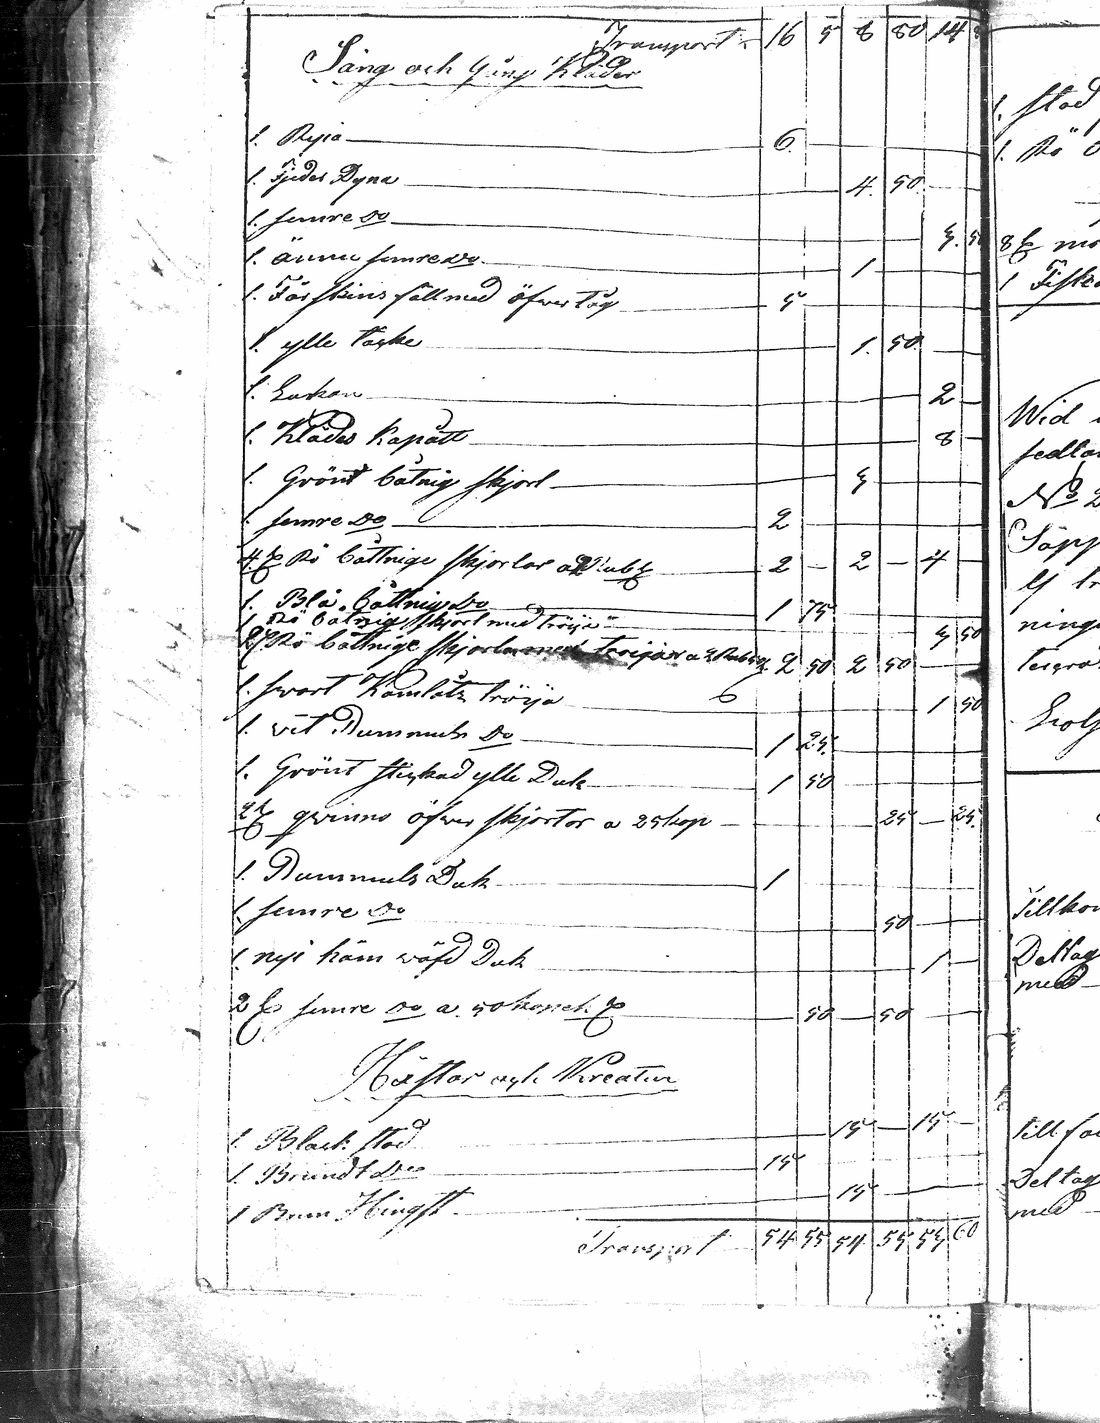 Transport 16 5 8 80 14
Säng och Gång Kläder
1. Ryia 6.
1. Fjeder Dyna 4. 50.
1. semre Do 3. 50
1. ännu semre Do 1
1. Fårskins fäll med öfwertåg 5
1. ylle täcke 1. 50.
1. Lakan 2
1. Klädes Kapått 8
1. Grönt båtnig skjort 3
1. semre Do 2
4 Rö båttnige skjortor a 2 Rub 2 2 4
1. Blå båttnig Do 1 75
1 Rö båtnig skjort med tröija 3 50
2 Rö båttnige skjortor med troijor a 2 Rub 50 2 50 2 50
1. swart Kamlåts tröija 1 50
1. vit Rummuls Do 1 25.
1. Grönt stickad ylle Duk 1 50
2 qwinns öfwer skjortor a 25 kop 25 25.
1. Rummuls Duk 1
1 semre Do 50
1. nyi häm wäfd Duk 1
2 semre Do a. 50 kopek 50 50
Hästar och Kreatur
1. Black stod 15 15
1 Brundt Do 15
1 Brun Hingst 15
Transport 54 55 54 55 53 60
1. stod
1. Rö
8
1 Fiske
Wid
sedla
No 2
ning
Tillko
Deltag
med
till fa
Deltag
med